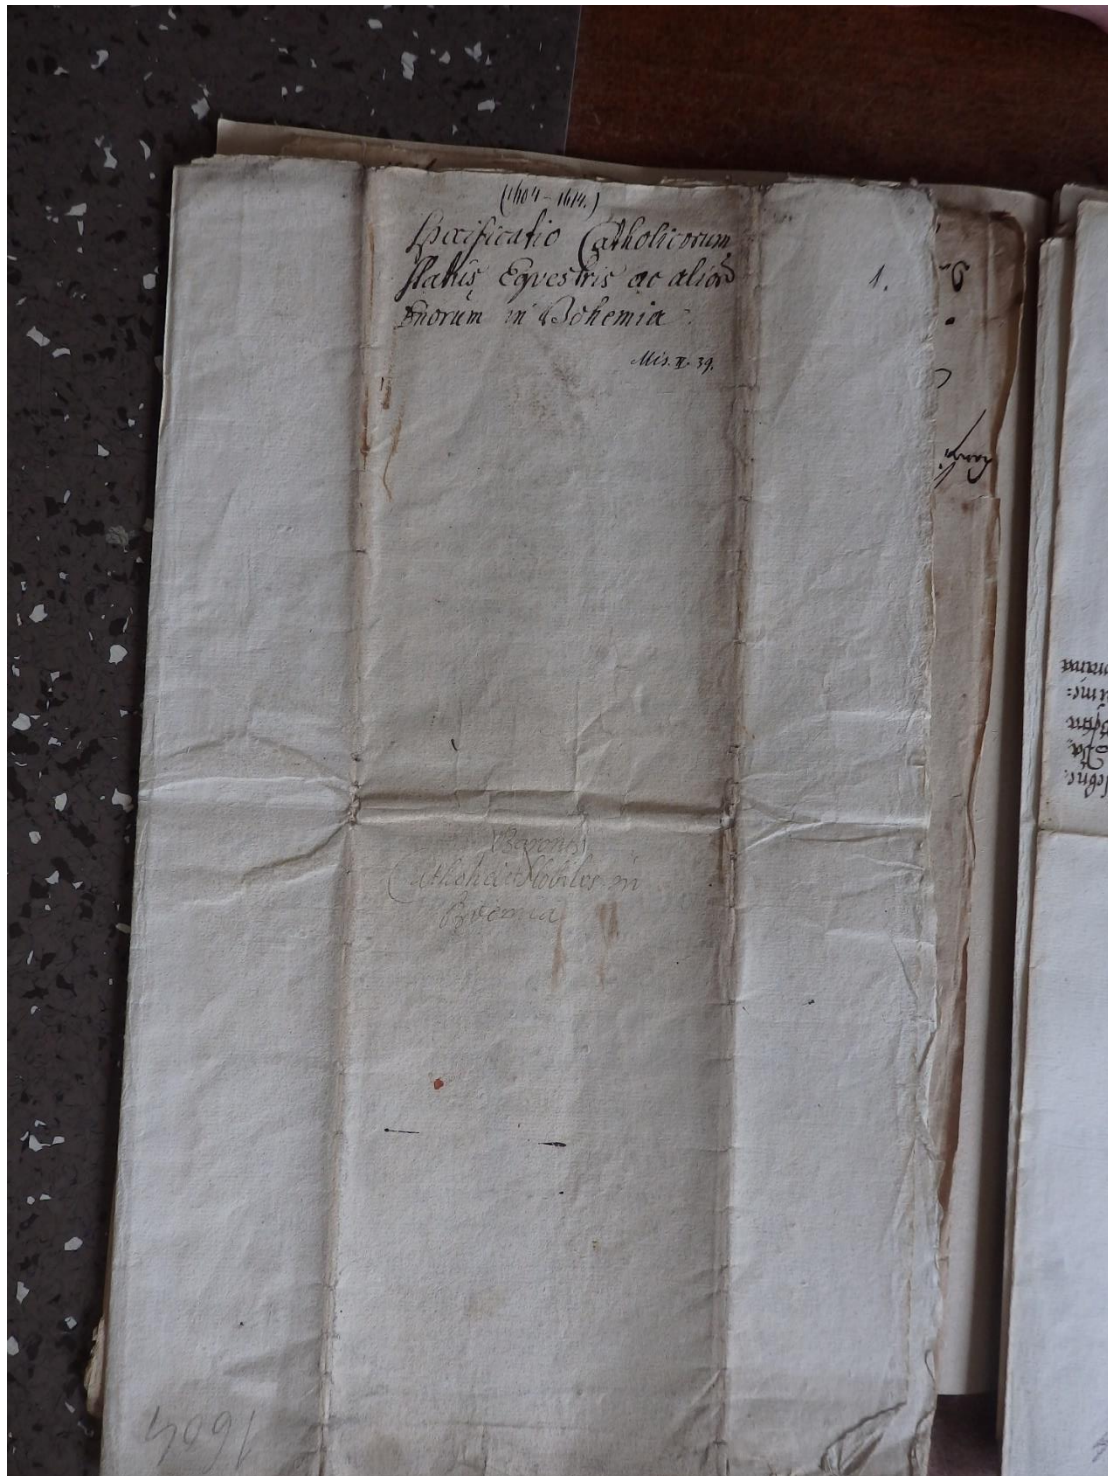 (1604 - 1614.)
Specificatio Catholicorum
status Eqvestris ac alior
Dnorum in Bohemia
1.
Mis. II. 39.
Barones
Catholici et Nobiles in
Boemia
1604